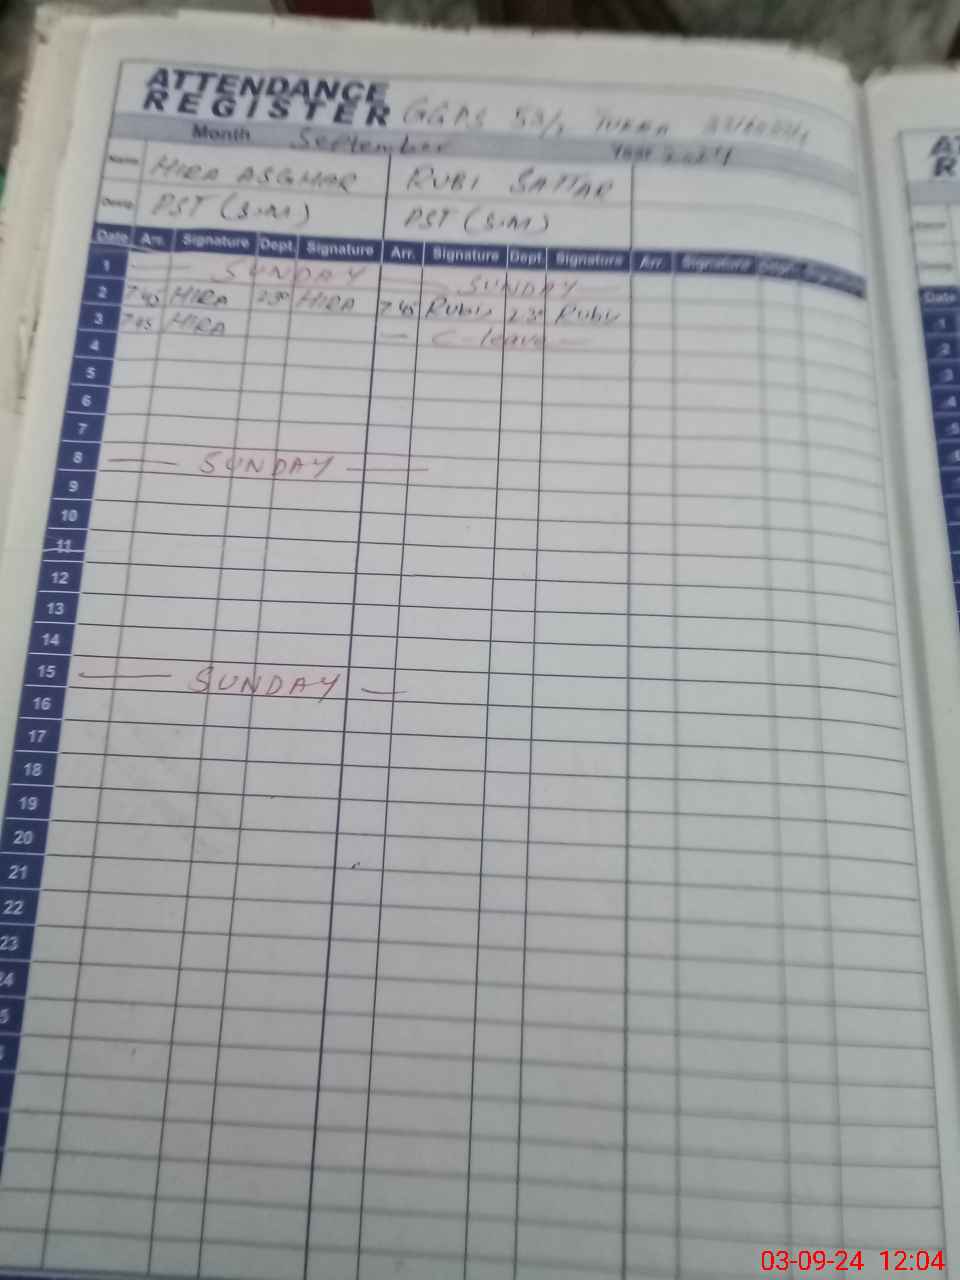 ATTENDANCE
REGISTER GGPS 53/
Month September Year 2024
Name HIRA ASGHAR RUBI SATTAR
Desig. PST (S.M) PST (S.M)
Date Arr. Signature Dept. Signature Arr. Signature Dept. Signature Arr. Signature Dept. Signature
1 SUNDAY SUNDAY
2 7 45 HIRA 2 30 HIRA 7 45 Ruby 2 30 Ruby
3 7 45 HIRA C-leave
4
5
6
7
8 SUNDAY
9
10
11
12
13
14
15 SUNDAY
16
17
18
19
20
21
22
23
24
5
AT
R
Date
1
2
3
4
5
03-09-24 12:04